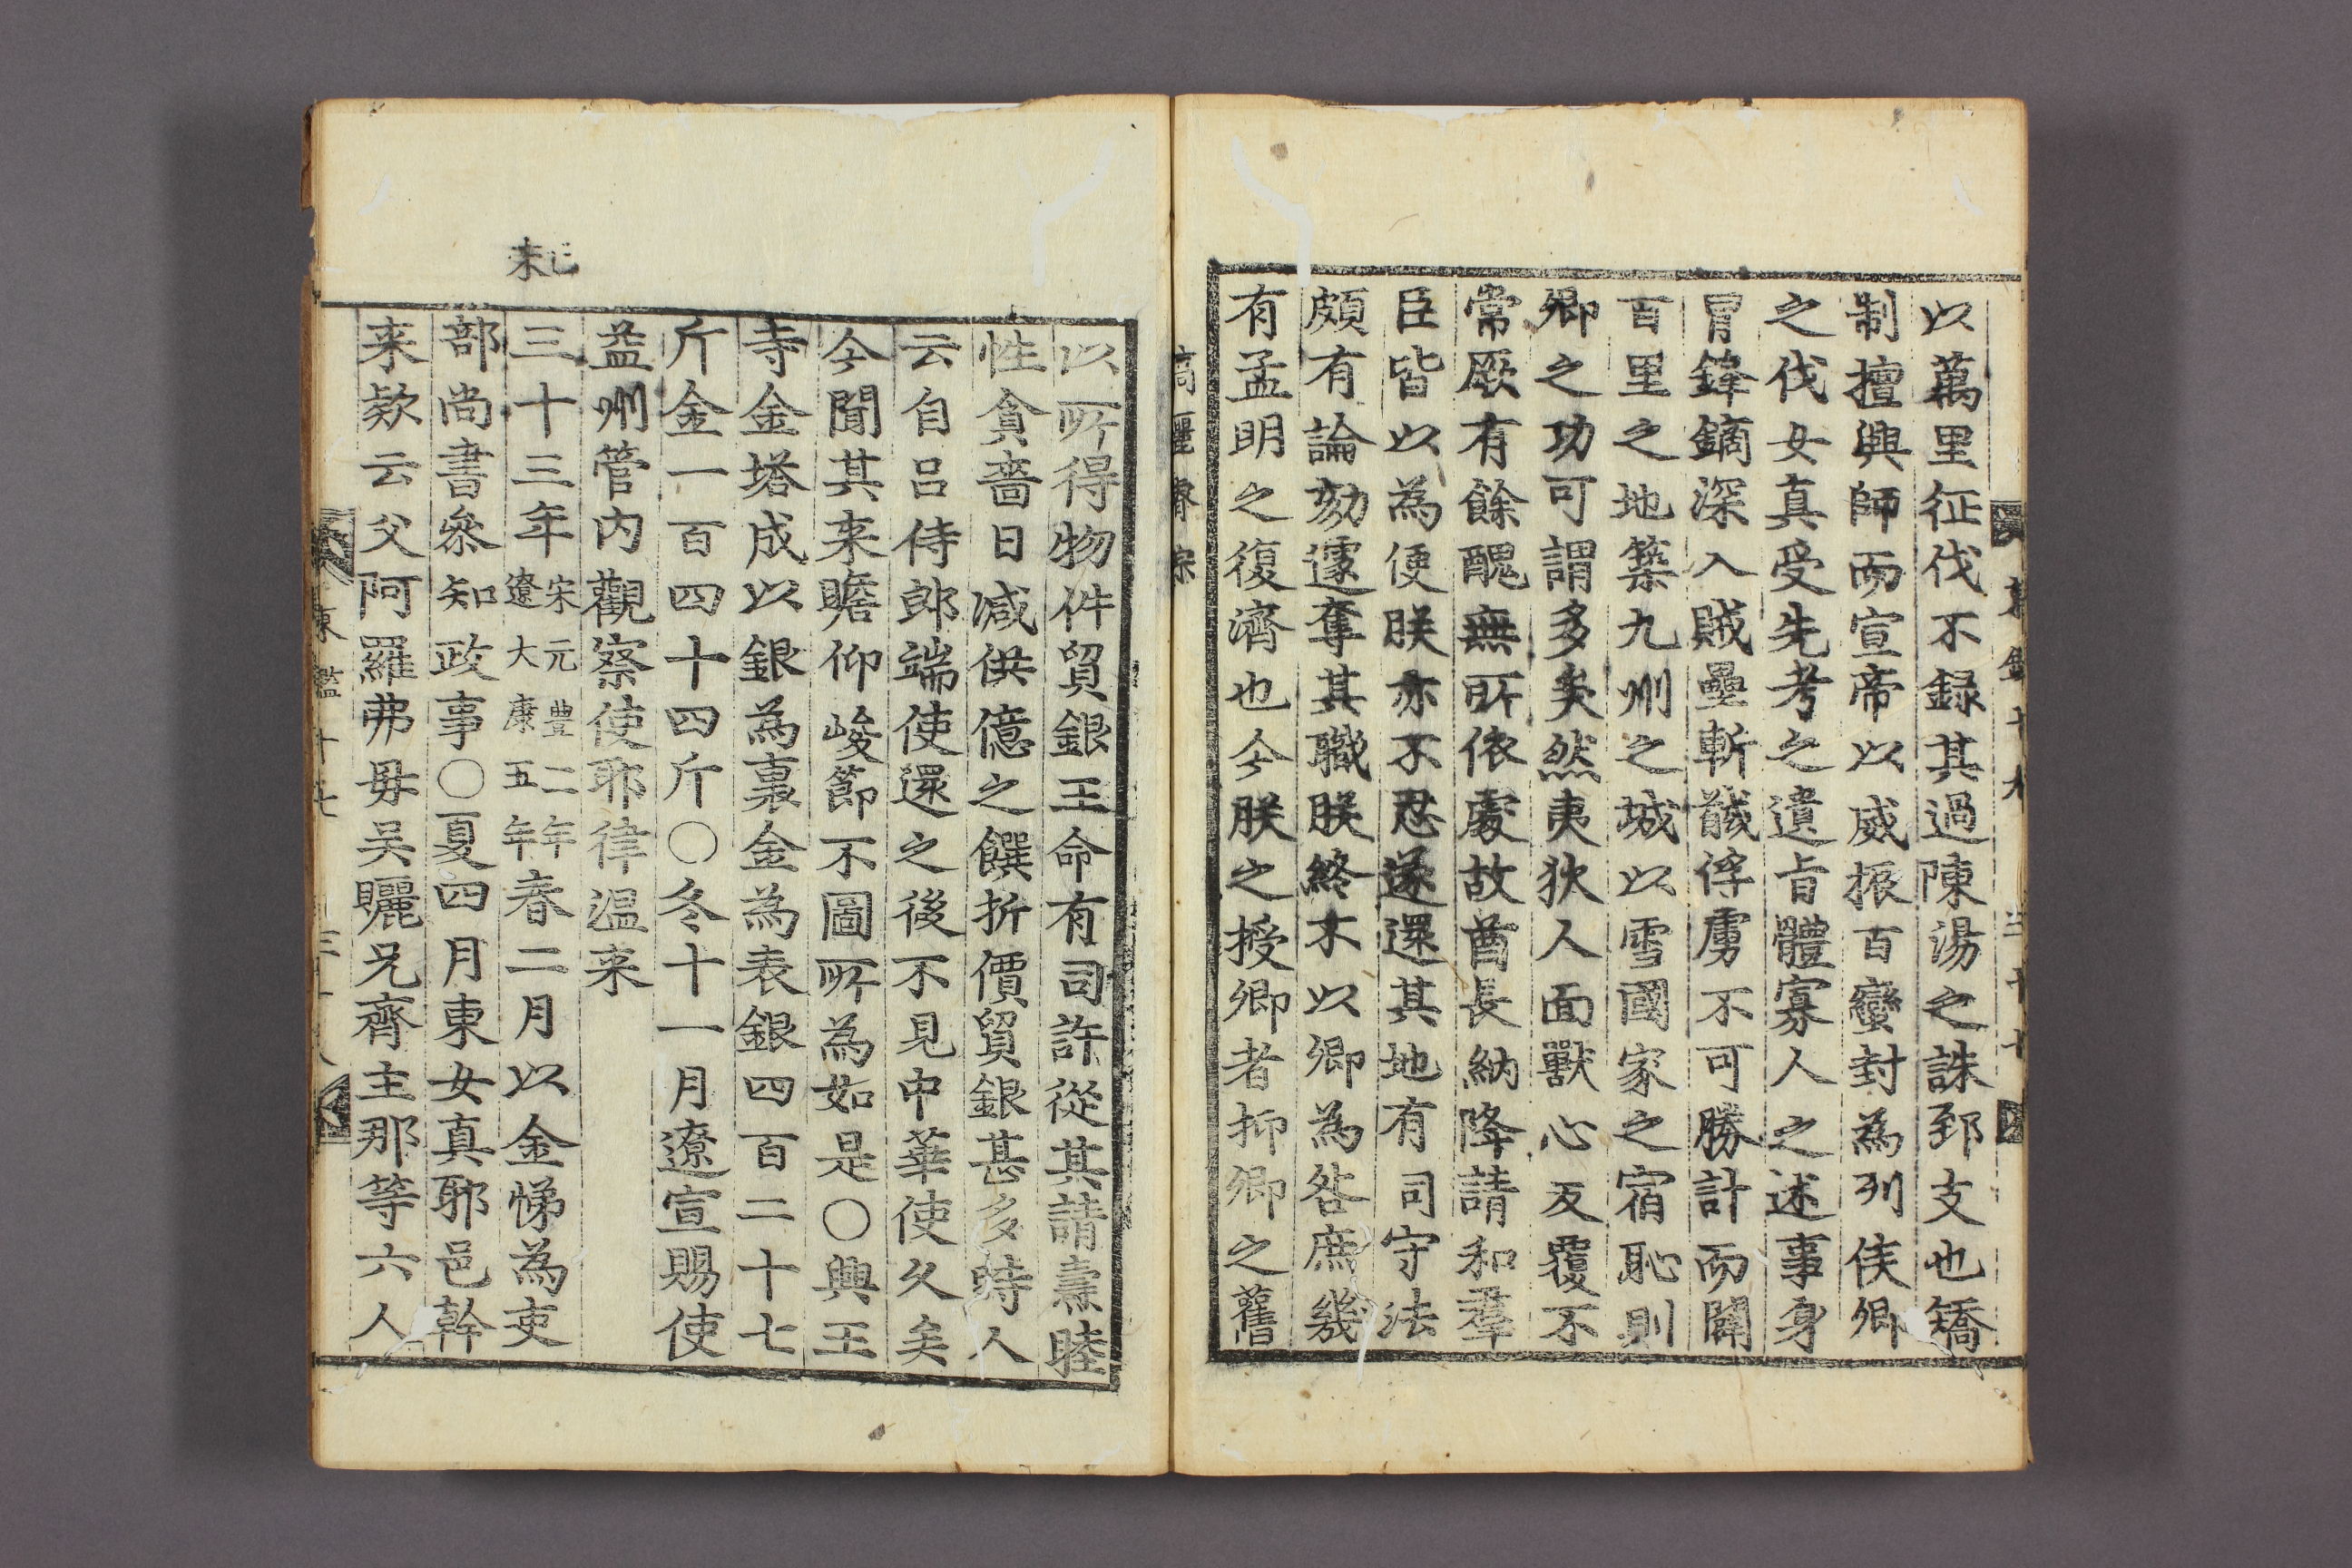 以萬里征伐不録其過陳湯之誅郅支也矯
制擅興師而宣帝以威振百蠻封為列侯卿
之伐女真受先考之遺旨體寡人之述事身
冒鋒鏑深入賊壘斬馘俘虜不可勝計而闢
百里之地築九州之城以雪國家之宿恥則
卿之功可謂多矣然夷狄人面獸心反覆不
常厥有餘醜無所依處故酋長納降請和羣
臣皆以為便朕亦不忍遂還其地有司守法
頗有論劾遽奪其職朕終不以卿為咎庶幾
有孟明之復濟也今朕之授卿者抑卿之舊
高麗睿宗
以所得物件貿銀王命有司許從其請壽睦
性貪嗇日減供億之饌折價貿銀甚多時人
云自呂侍郎端使還之後不見中華使久矣
今聞其来瞻仰峻節不圖所為如是〇興王
寺金塔成以銀為裏金為表銀四百二十七
斤金一百四十四斤〇冬十一月遼宣賜使
益州管内觀察使耶律温来
己未
三十三年宋元豊二年遼大康五年春二月以金悌為吏
部尚書叅知政事〇夏四月東女真耶邑幹
来欵云父阿羅弗毋吴曬兄齊主那等六人
東鑑十七